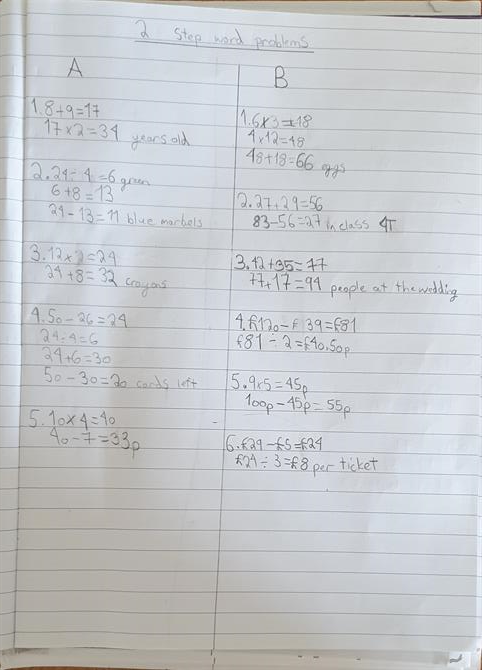 2 step word problems
A
1.8+9=17
17x2=34 years old
2.24÷4=6 green
6+8=13
24-13=11 blue marbels
3.12x2=24
24+8=32 crayons
4.50-26=24
24÷4=6
24+6=30
50-30=20 cards left
5.10x4=40
40-7=33p
B
1.6x3=18
4x12=48
48+18=66 eggs
2.27+29=56
83-56=27 in class 4T
3.42+35=77
77+17=94 people at the wedding
4.£120-£39=£81
£81÷2=£40.50p
5.9x5=45p
100p-45p=55p
6.£29-£5=£24
£24÷3=£8 per ticket